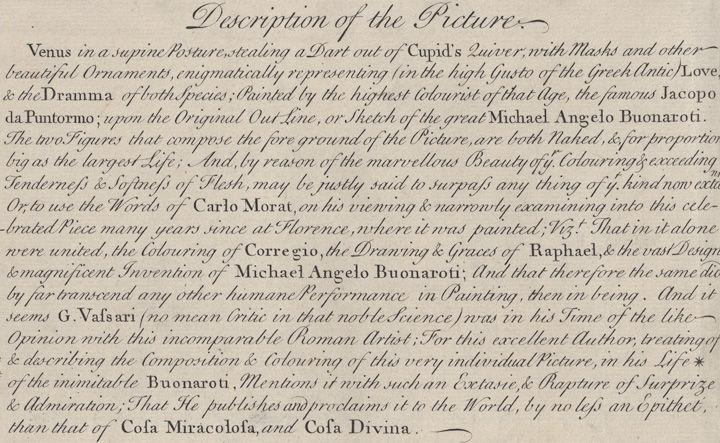 Description of the Picture.
Venus in a supine Posture, stealing a Dart out of Cupid's Quiver, with Masks and other
beautiful Ornaments, enigmatically representing (in the high Gusto of the Greek Antic) Love,
& the Dramma of both Species; Painted by the highest Colourist of that Age, the famous Jacopo
da Puntormo; upon the Original Out Line, or Sketch of the great Michael Angelo Buonaroti.
The two Figures that compose the fore ground of the Picture, are both Naked, & for proportion
big as the largest Life; And, by reason of the marvellous Beauty of yͤ. Colouring & exceeding
Tenderneſs & Softneſs of Flesh, may be justly said to surpaſs any thing of yͤ. kind now extant
Or, to use the Words of Carlo Morat, on his viewing & narrowly examining into this cele-
-brated Piece many years since at Florence, where it was painted; Vizt. That in it alone
were united, the Colouring of Corregio, the Drawing & Graces of Raphael, & the vast Design
& magnificent Invention of Michael Angelo Buonaroti; And that therefore the same did
by far transcend any other humane Performance in Painting, then in being. And it
seems G. Vaſsari (no mean Critic in that noble Science) was in his Time of the like
Opinion with this incomparable Roman Artist; For this excellent Author, treating of
& describing the Composition & Colouring of this very individual Picture, in his Life *
of the inimitable Buonaroti, Mentions it with such an Extasie, & Rapture of Surprize
& Admiration; That He publishes and proclaims it to the World, by no leſs an Epithet,
than that of Coſa Miracoloſa, and Coſa Divina.